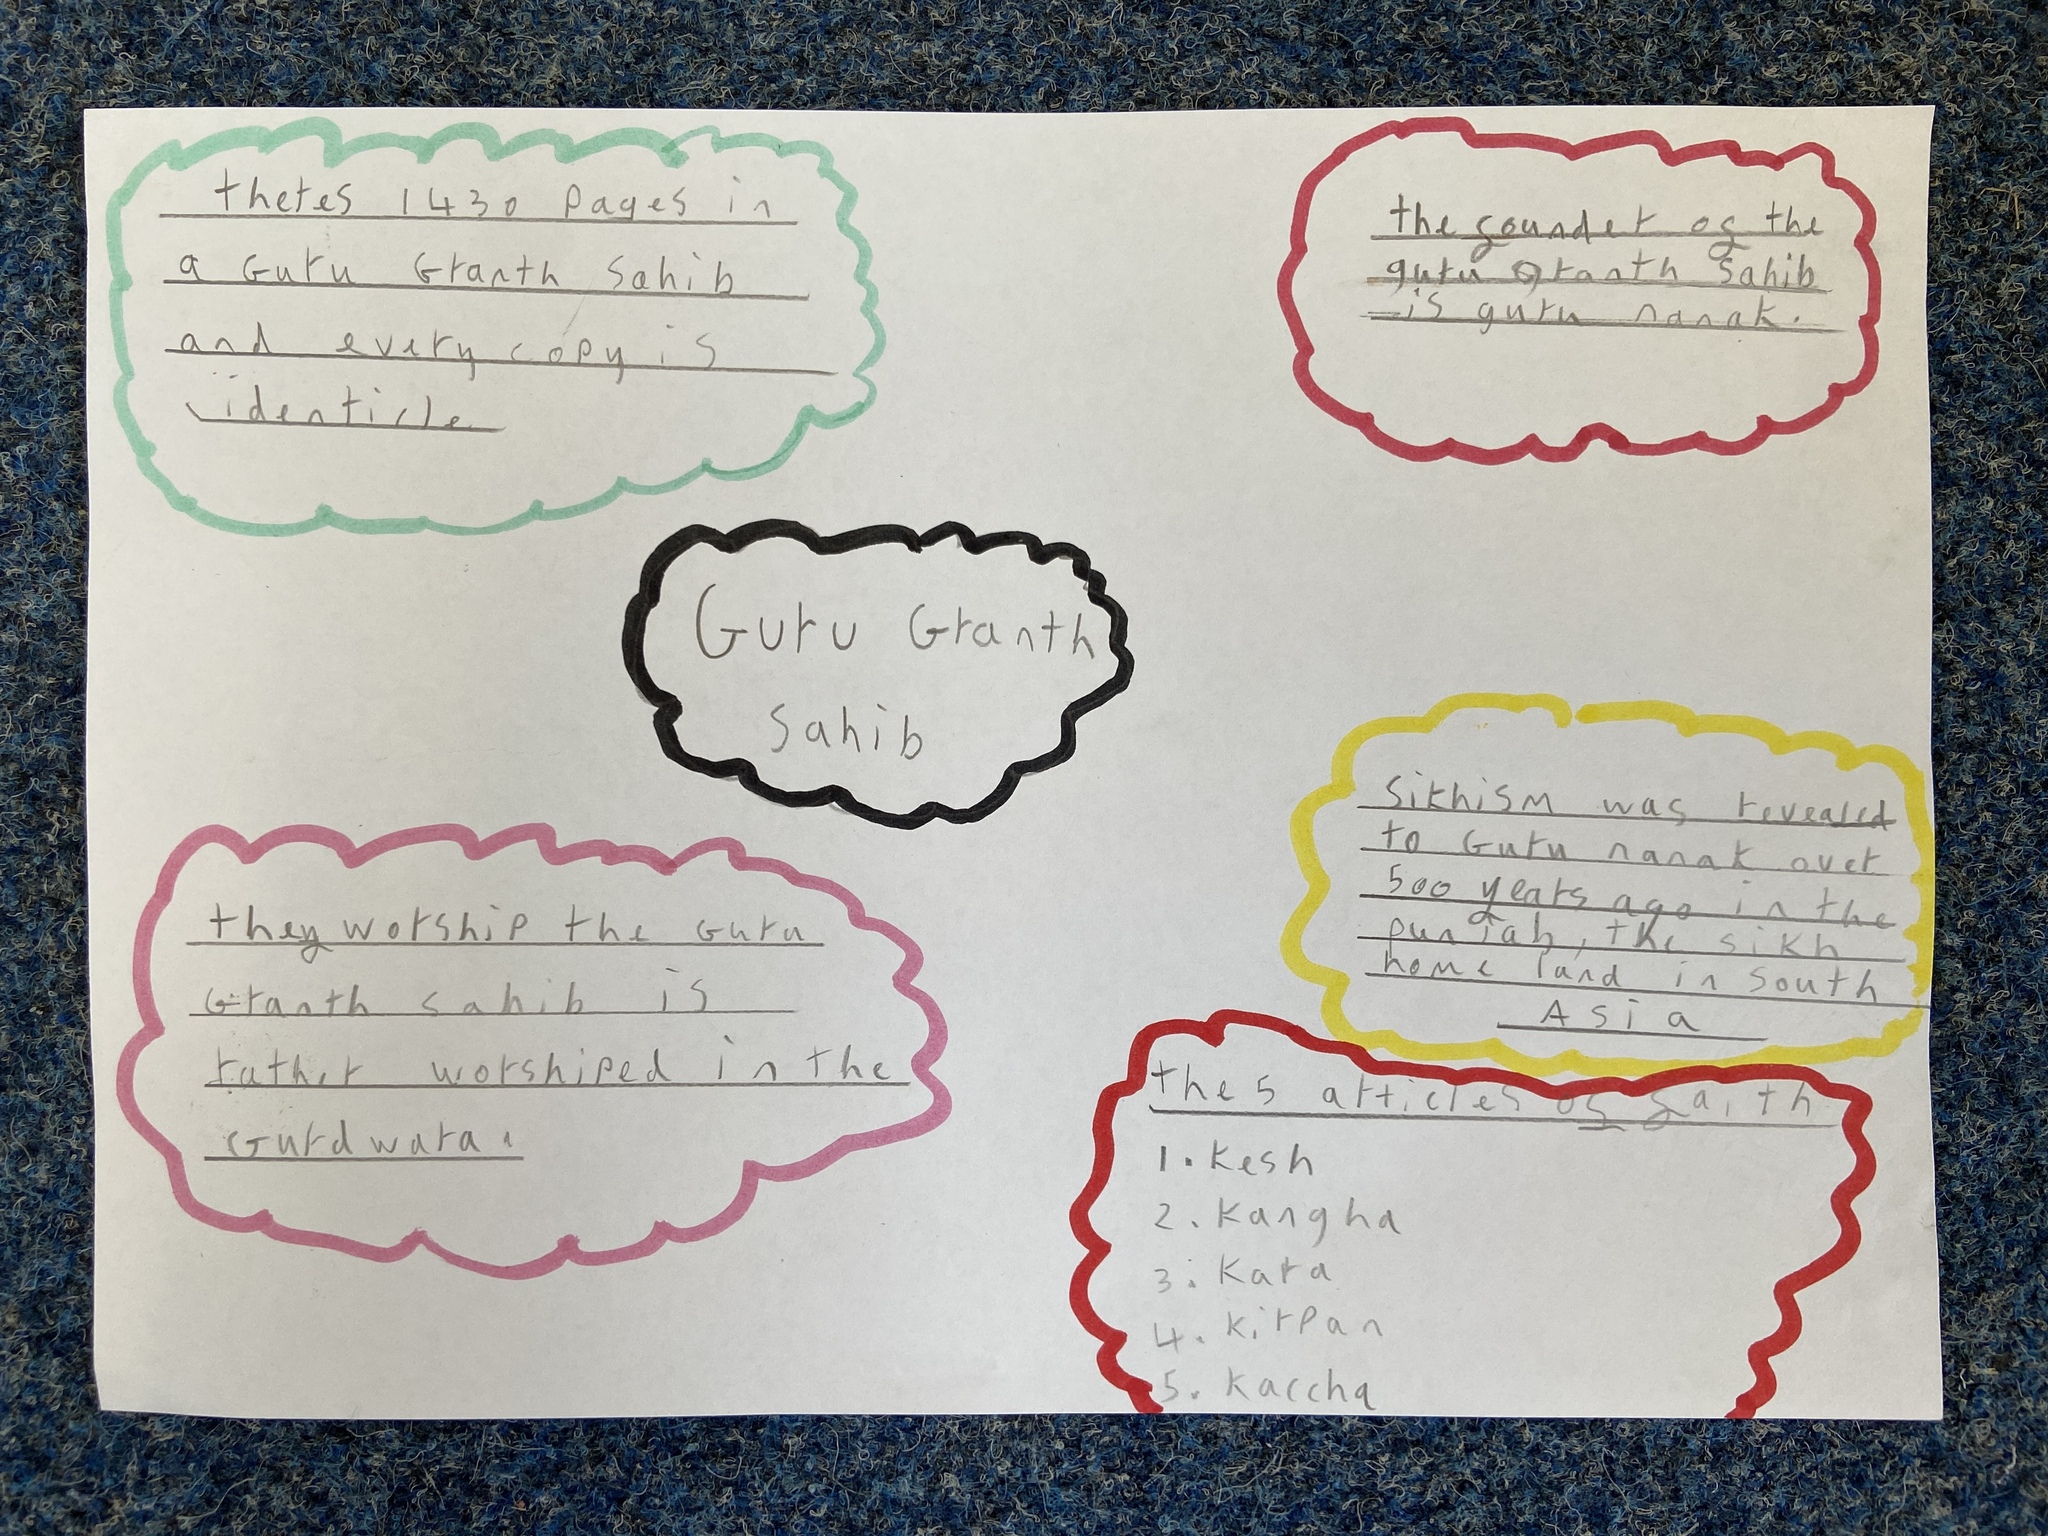 theres 1430 pages in
a Guru Granth Sahib
and every copy is
identicle
the founder of the
guru Granth Sahib
is guru nanak.
Guru Granth
Sahib
Sikhism was revealed
to Guru nanak over
500 years ago in the
punjab, the sikh
home land in south
Asia
they worship the Guru
Granth sahib is
rather worshiped in the
Gurdwara.
the 5 articles of faith
1. Kesh
2. Kangha
3. Kara
4. Kirpan
5. Kaccha